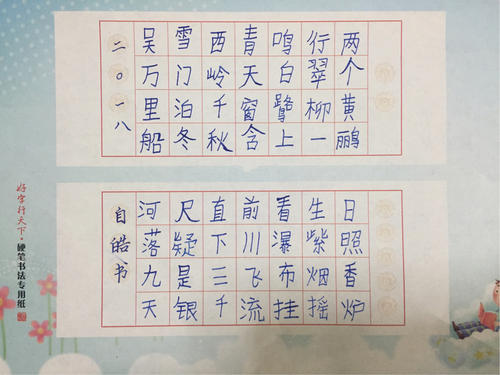 两个黄鹂
行翠柳一
鸣白鹭上
青天窗含
西岭千秋
雪门泊冬
吴万里船
二〇一八
日照香炉
生紫烟摇
看瀑布挂
前川飞流
直下三千
尺疑是银
河落九天
自皓书
好字行天下·硬笔书法专用纸